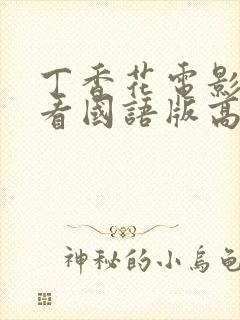 丁香花電影
看國語版高
神秘的小烏龜